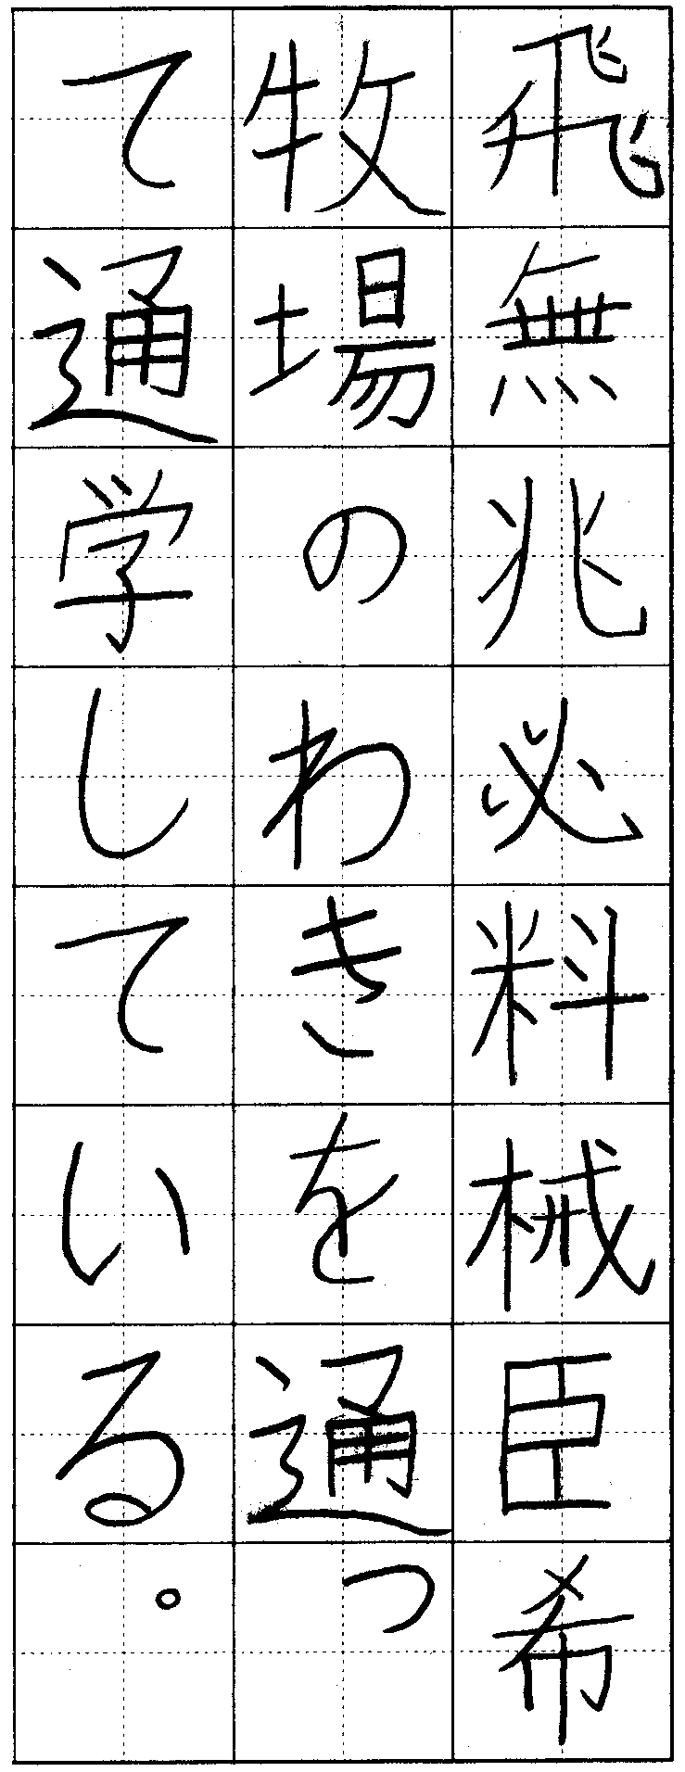 飛無兆必料械臣希
牧場のわきを通っ
て通学している。